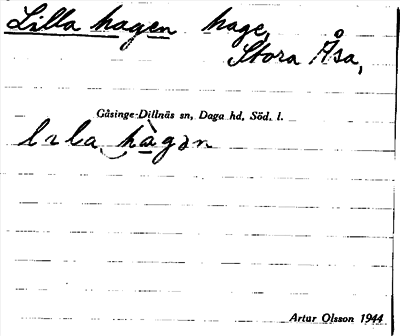 Lilla hagen hage,
Stora Åsa,
Gåsinge-Dillnäs sn, Daga hd, Söd. l.
Artur Olsson 1944